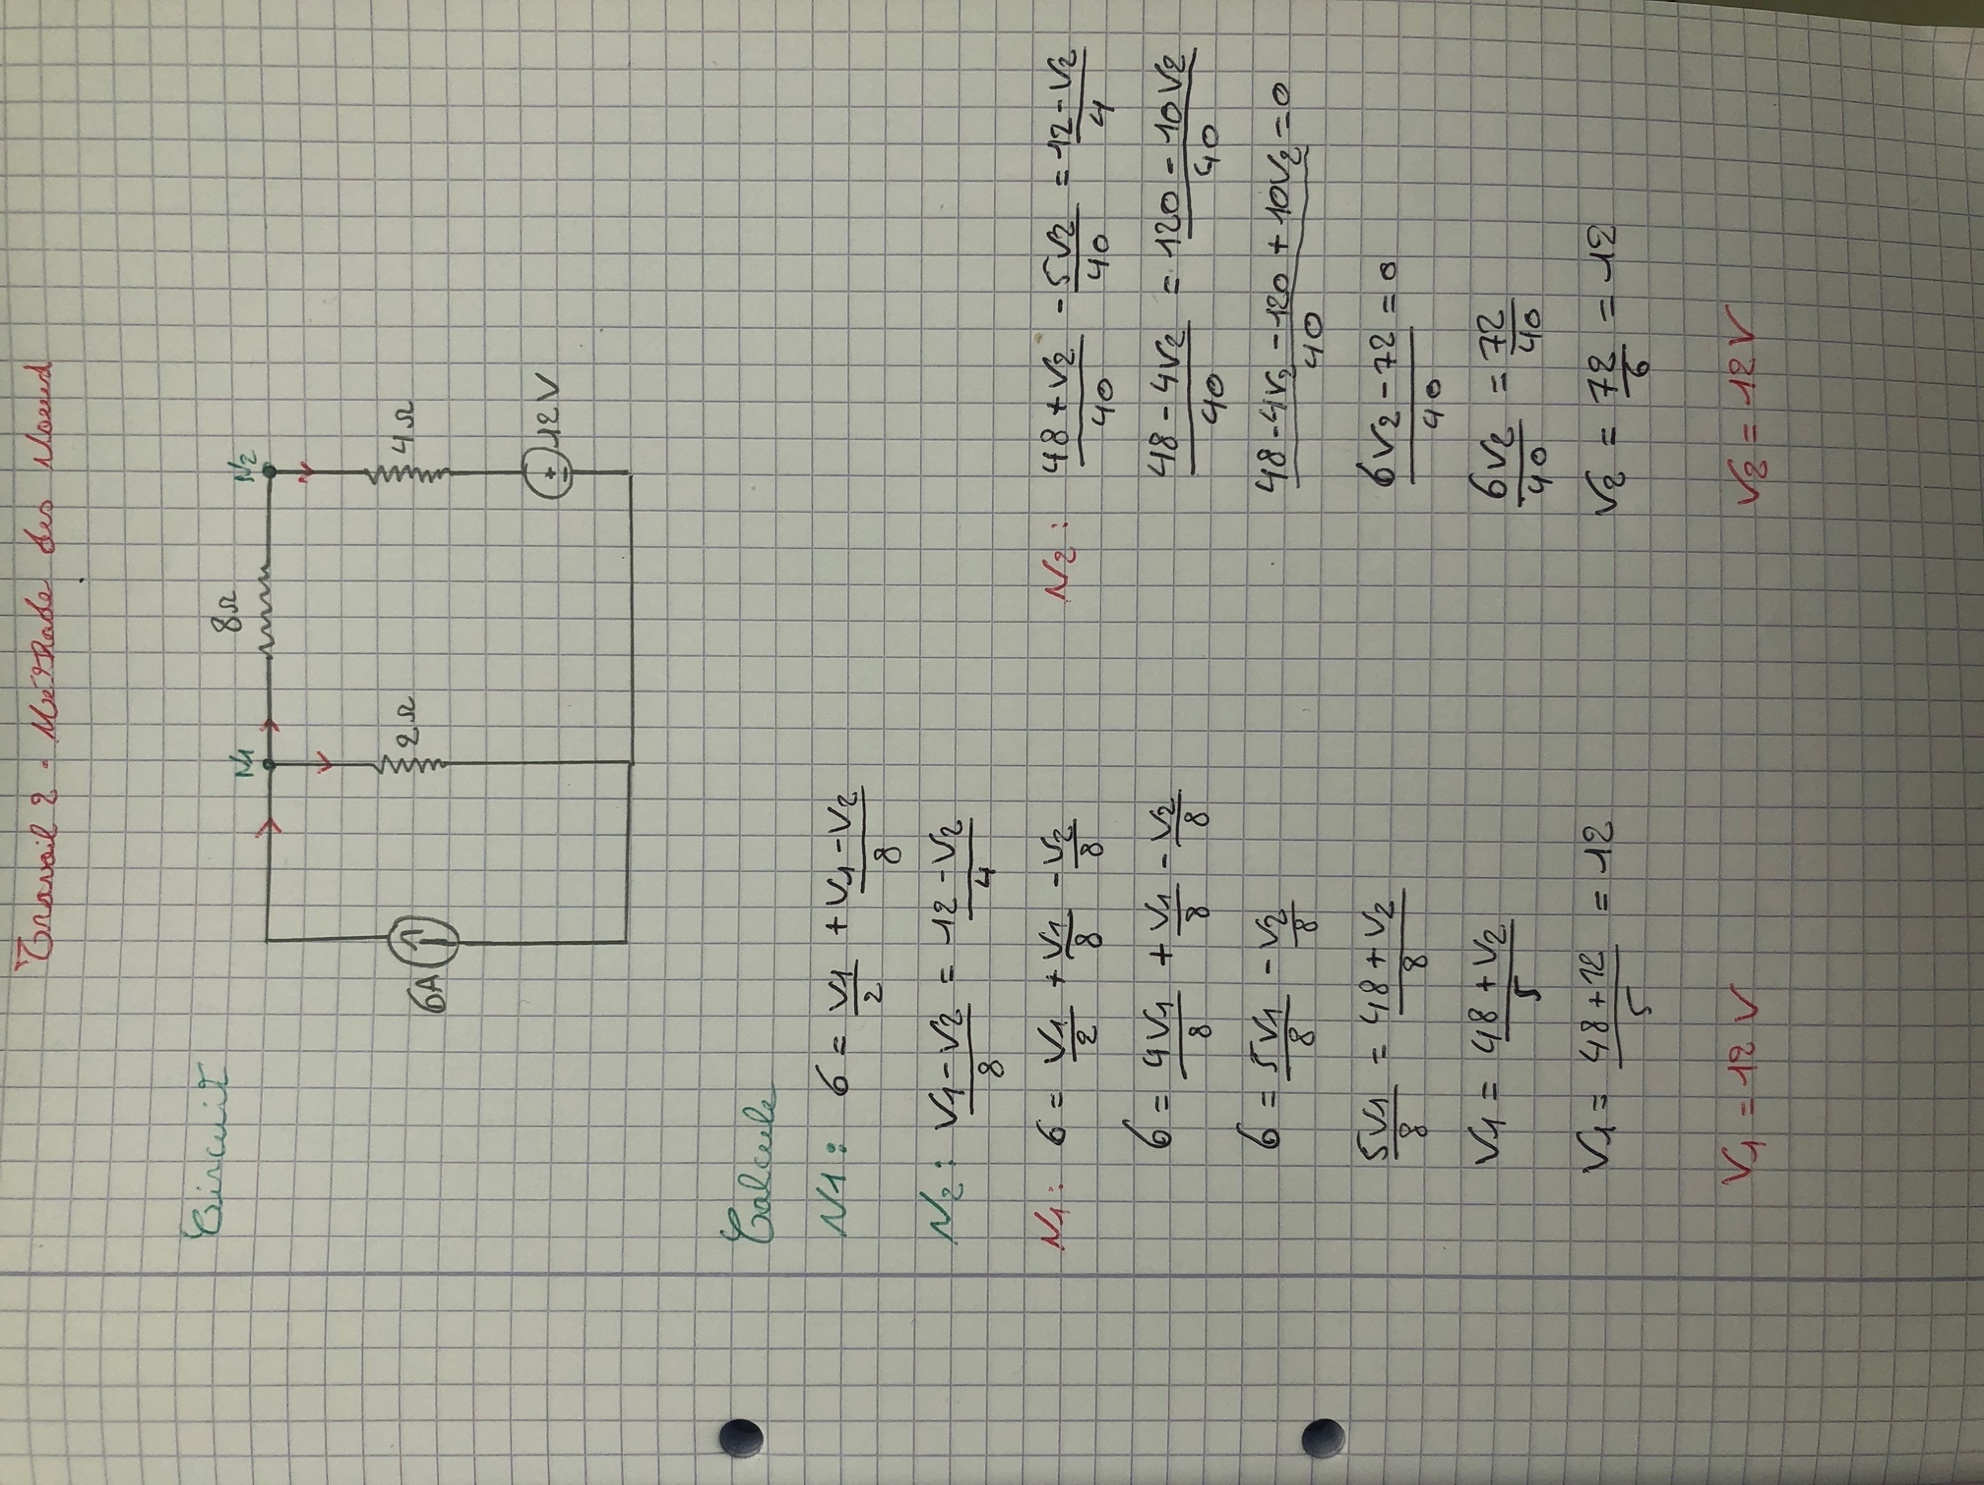 Travail 2 - Méthode des Noeud
Circuit
8Ω
N1
N2
6A
2Ω
4Ω
12V
Calcule
N1: 6 = V1/2 + (V1 - V2)/8
N2: (V1 - V2)/8 = (12 - V2)/4
N1: 6 = V1/2 + V1/8 - V2/8
6 = 4V1/8 + V1/8 - V2/8
6 = 5V1/8 - V2/8
5V1/8 = (48 + V2)/8
V1 = (48 + V2)/5
V1 = (48 + 12)/5 = 12
V1 = 12 V
N2: (48 + V2)/40 - 5V2/40 = (12 - V2)/4
(48 - 4V2)/40 = (120 - 10V2)/40
(48 - 4V2 - 120 + 10V2)/40 = 0
(6V2 - 72)/40 = 0
6V2/40 = 72/40
V2 = 72/6 = 12
V2 = 12 V